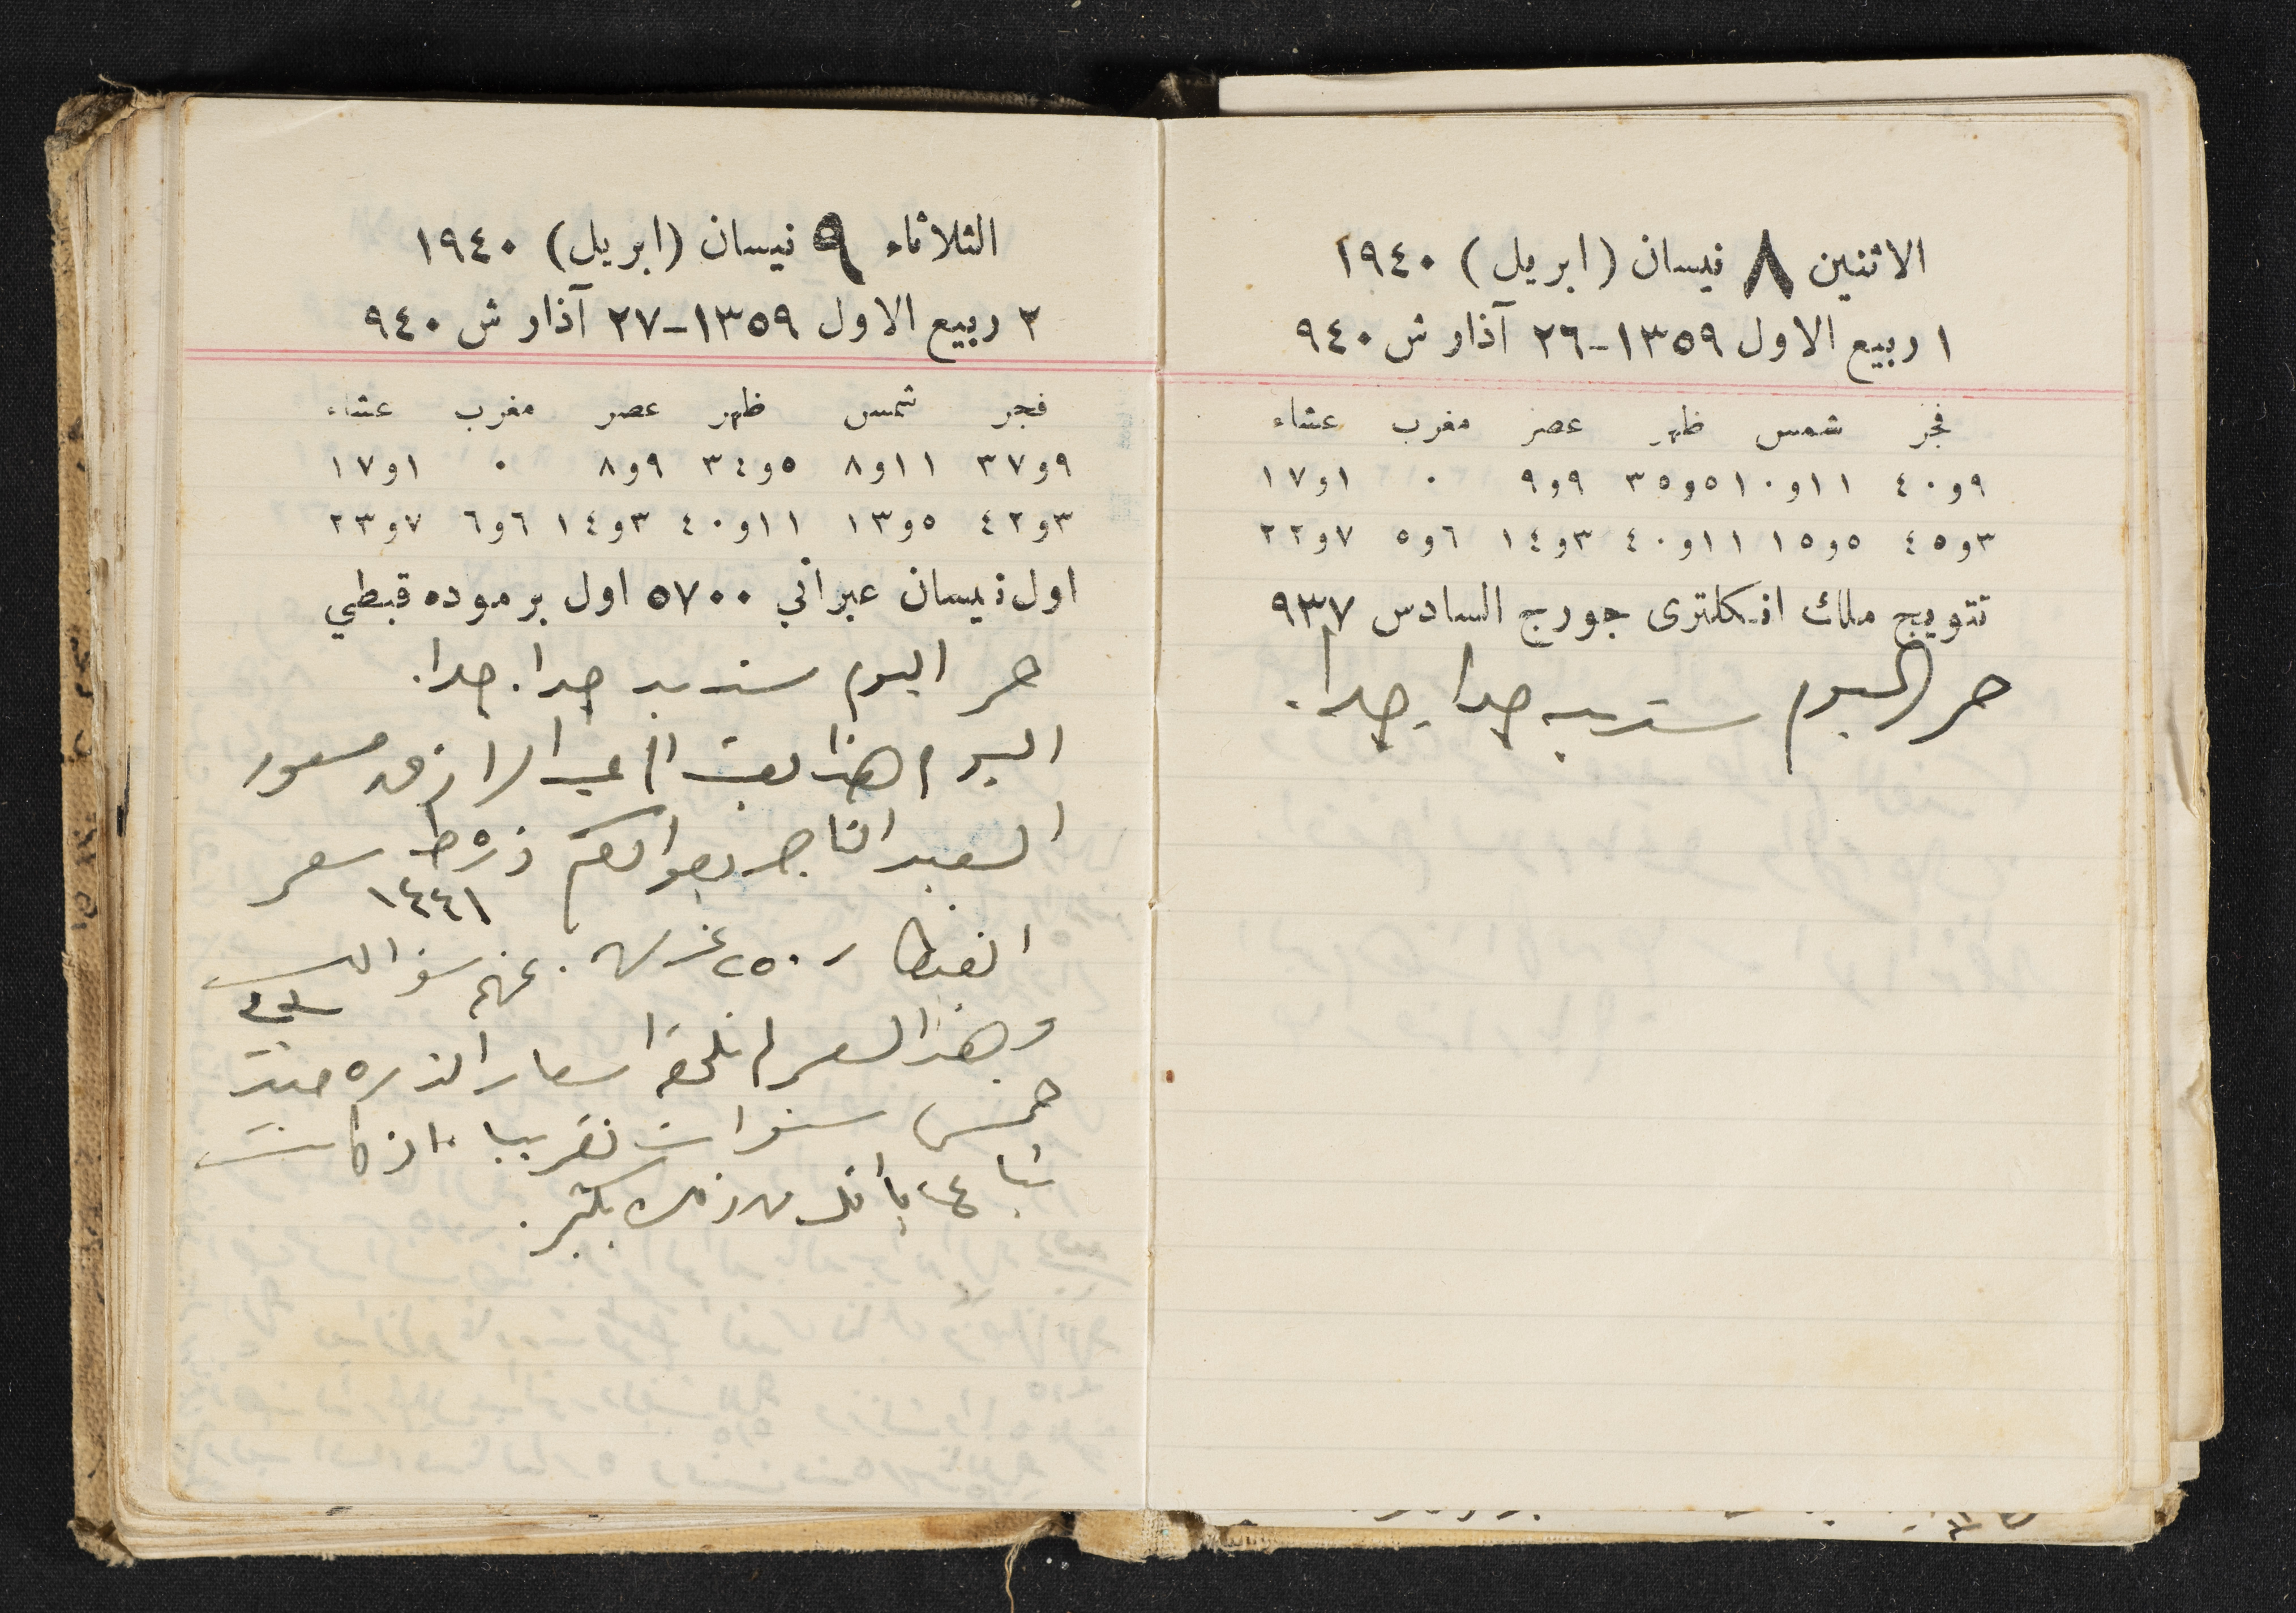 الاثنين ٨ نيسان (ابريل) ١٩٤٠
١ ربيع الاول ١٣٥٩-٢٦ آذار ش ٩٤٠
فجر شمس ظهر عصر مغرب عشاء
٩و٤٠ ١١و١٠ ٥و٣٥ ٩و٩ ٠ ١و١٧
٣و٤٥ ٥و١٥ ١١و٤٠ ٣و١٤ ٦و٥ ٧و٢٢
تتويج ملك انكلترى جورج السادس ٩٣٧
حر اليوم شديد جدا. جدا.
الثلاثاء ٩ نيسان (ابريل) ١٩٤٠
٢ ربيع الاول ١٣٥٩-٢٧ آذار ش ٩٤٠
فجر شمس ظهر عصر مغرب عشاء
٩و٣٧ ١١و٨ ٥و٣٤ ٩و٨ ٠ ١و١٧
٣و٤٢ ٥و١٣ ١١و٤٠ ٣و١٤ ٦و٦ ٧و٢٣
اول نيسان عبراني ٥٧٠٠ اول برموده قبطي
حر اليوم شديد جدا. جدا.
اليوم هذا بعت الى عبد الرازق مسعود
السعيد التاجر بطولكرم ذره ط سعر
١٤٤١
القنطار ٢٥٠ غرش.
وهذا السعر لم تلحقه اسعار الذره منذ
خمس سنوات تقريبا. اذ كانت
تباع باقل من ذلك بكثير.